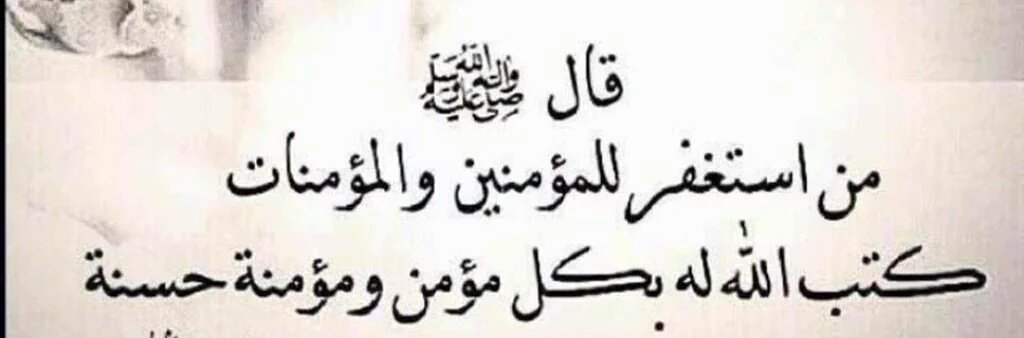 قال ﷺ
من استغفر للمؤمنين والمؤمنات
كتب الله له بكل مؤمن ومؤمنة حسنة